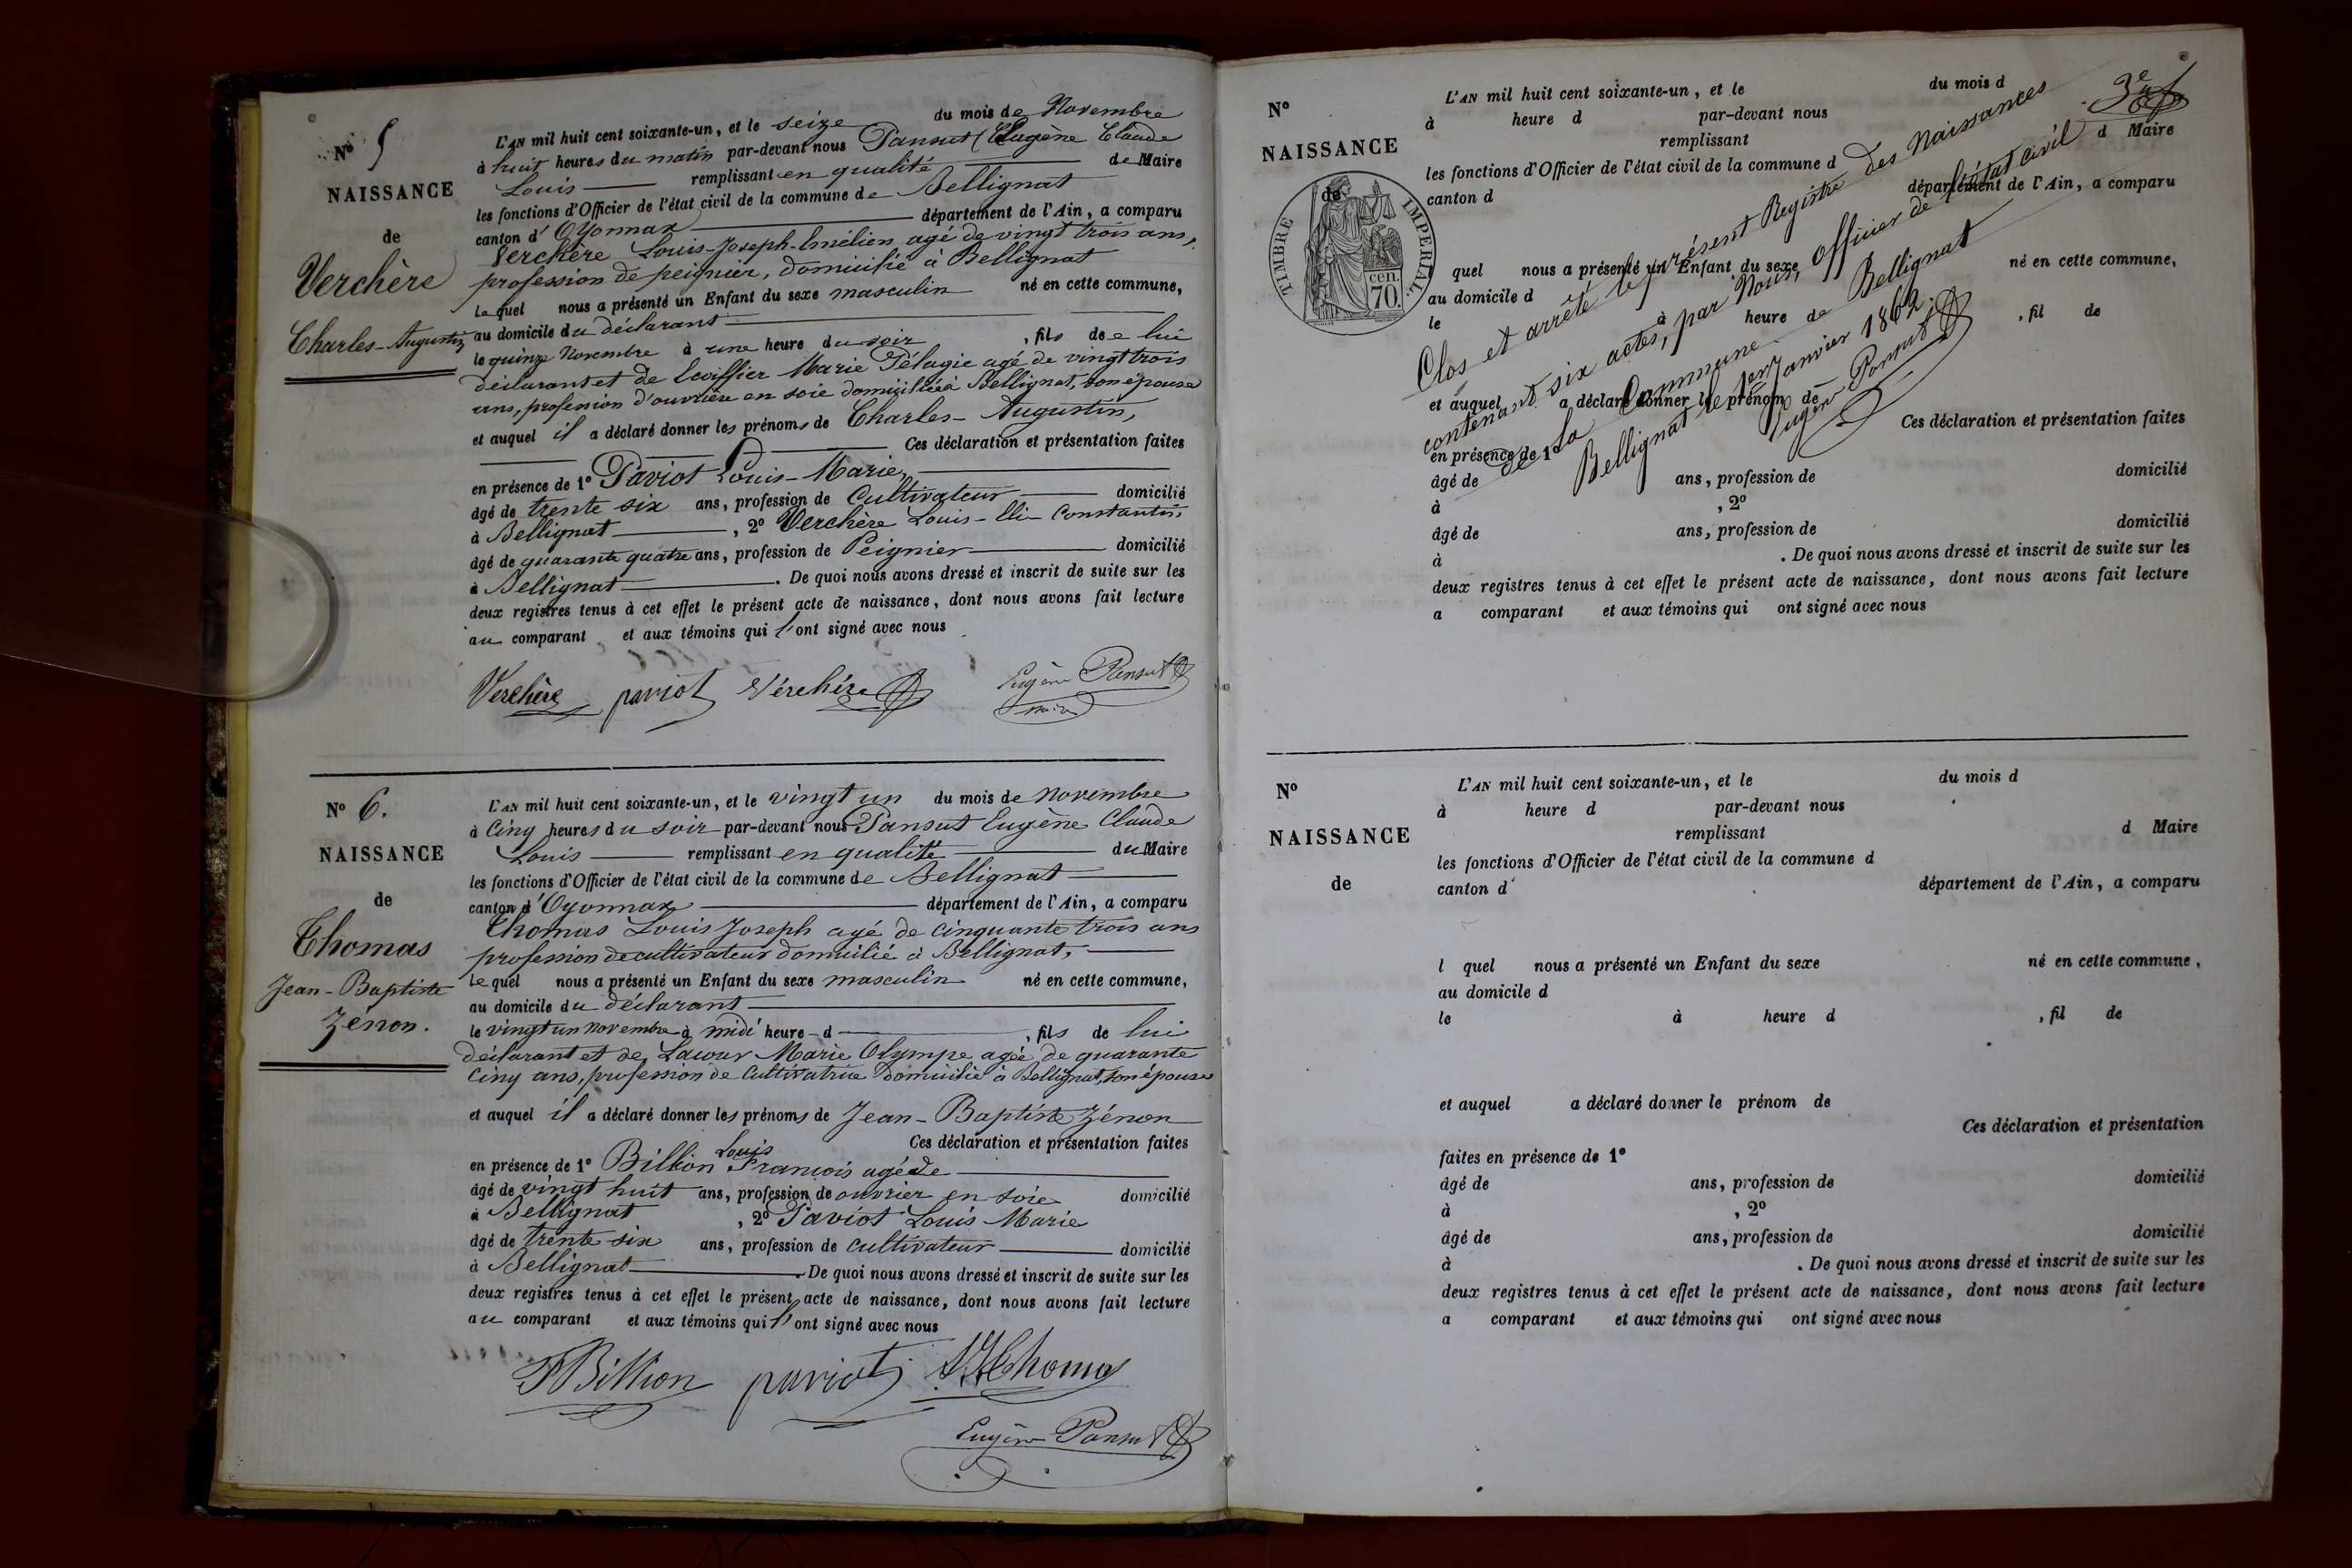 N° 5
NAISSANCE
de
Verchère
Charles-Augustin
L'AN mil huit cent soixante-un, et le seize du mois de Novembre
à huit heures du matin par-devant nous Pansut Eugène Claude
Louis remplissant en qualité de Maire
les fonctions d'Officier de l'état civil de la commune de Bellignat
canton d'Oyonnax département de l'Ain, a comparu
Verchère Louis-Joseph-Emélien agé de vingt trois ans,
profession de peignier, domicilié à Bellignat
lequel nous a présenté un Enfant du sexe masculin né en cette commune,
au domicile du déclarant
le quinze Novembre à une heure du soir, fils de lui
déclarant et de Marie Pélagie agé de vingt trois
ans, profession d'ouvrière en soie domiciliée à Bellignat, son épouse
et auquel il a déclaré donner les prénoms de Charles-Augustin,
Ces déclaration et présentation faites
en présence de 1° Paviot Louis-Marie
âgé de trente six ans, profession de Cultivateur domicilié
à Bellignat, 2° Verchère Louis-Elie Constantin
âgé de quarante quatre ans, profession de Peignier domicilié
à Bellignat. De quoi nous avons dressé et inscrit de suite sur les
deux registres tenus à cet effet le présent acte de naissance, dont nous avons fait lecture
au comparant et aux témoins qui ont signé avec nous
Verchère paviot Verchère Eugène Pansut
maire
N° 6.
NAISSANCE
de
Thomas
Jean-Baptiste
Zénon.
L'AN mil huit cent soixante-un, et le vingt un du mois de novembre
à Cinq heures du soir par-devant nous Pansut Eugène Claude
Louis remplissant en qualité du Maire
les fonctions d'Officier de l'état civil de la commune de Bellignat
canton d'Oyonnax département de l'Ain, a comparu
Thomas Louis Joseph agé de cinquante trois ans
profession de cultivateur domicilié à Bellignat,
lequel nous a présenté un Enfant du sexe masculin né en cette commune,
au domicile du déclarant
le vingt un novembre à midi heure d, fils de lui
déclarant et de Lacour Marie Olympe agée de quarante
Cinq ans, profession de Cultivatrice domicilié à Bellignat, son épouse
et auquel il a déclaré donner les prénoms de Jean-Baptiste Zénon
Ces déclaration et présentation faites
en présence de 1° Billion Louis François agé de
âgé de vingt huit ans, profession de ouvrier en soie domicilié
à Bellignat, 2° Paviot Louis Marie
âgé de trente six ans, profession de cultivateur domicilié
à Bellignat. De quoi nous avons dressé et inscrit de suite sur les
deux registres tenus à cet effet le présent acte de naissance, dont nous avons fait lecture
au comparant et aux témoins qui ont signé avec nous
Billion paviot Thomas
Eugène Pansut
N°
NAISSANCE
de
TIMBRE IMPERIAL.
70 cen.
L'AN mil huit cent soixante-un, et le du mois d
à heure d par-devant nous
remplissant d Maire
les fonctions d'Officier de l'état civil de la commune d
canton d département de l'Ain, a comparu
quel nous a présenté un Enfant du sexe né en cette commune,
au domicile d
le à heure d, fil de
et auquel a déclaré donner le prénom de
Ces déclaration et présentation faites
en présence de 1°
âgé de ans, profession de domicilié
à, 2°
âgé de ans, profession de domicilié
à. De quoi nous avons dressé et inscrit de suite sur les
deux registres tenus à cet effet le présent acte de naissance, dont nous avons fait lecture
a comparant et aux témoins qui ont signé avec nous
Clos et arrêté le présent Registre des Naissances
contenant six actes, par Nous, Officier de l'état civil
de la Commune de Bellignat
Bellignat le 1er Janvier 1862.
Eugène Pansut
N°
NAISSANCE
de
L'AN mil huit cent soixante-un, et le du mois d
à heure d par-devant nous
remplissant d Maire
les fonctions d'Officier de l'état civil de la commune d
canton d' département de l'Ain, a comparu
l quel nous a présenté un Enfant du sexe né en cette commune,
au domicile d
le à heure d, fil de
et auquel a déclaré donner le prénom de
Ces déclaration et présentation
faites en présence de 1°
âgé de ans, profession de domicilié
à, 2°
âgé de ans, profession de domicilié
à. De quoi nous avons dressé et inscrit de suite sur les
deux registres tenus à cet effet le présent acte de naissance, dont nous avons fait lecture
a comparant et aux témoins qui ont signé avec nous